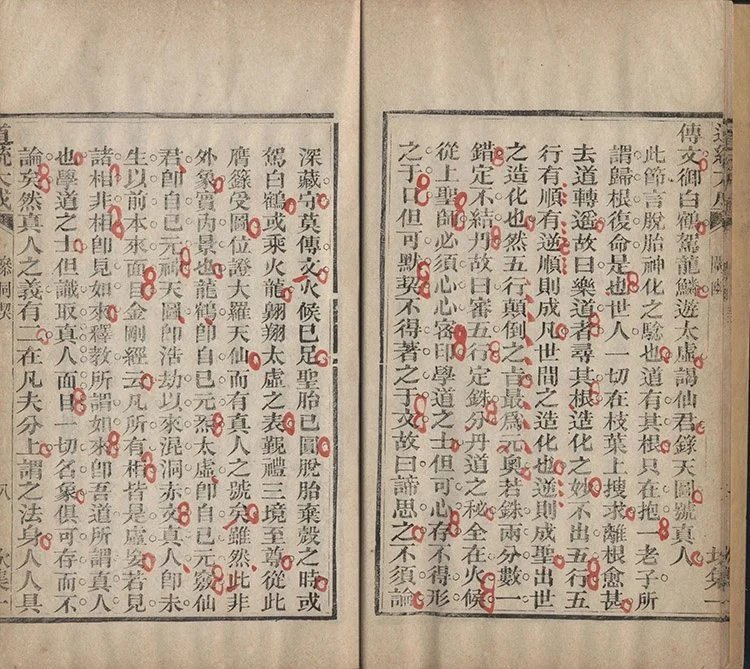 傳文御白鶴駕龍鱗遊太虛謁仙君錄天圖號真人
此節言脫胎神化之騐也道有其根只在抱一老子所
謂歸根復命是也世人一切在枝葉上搜求離根愈甚
去道轉遙故曰樂道者尋其根造化之妙不出五行五
行有順有逆順則成凡世間之造化也逆則成聖出世
之造化也然五行顛倒之旨最爲元奧若銖兩分數一
錯定不結丹故曰審五行定銖分丹道之秘全在火候
從上聖師必須心心密印學道之士但可心存不得形
之于口但可默契不得著之于文故曰諦思之不須論
深藏守莫傳文火候已足聖胎已圓脫胎棄殼之時或
駕白鶴或乘火龍翺翔太虛之表覲禮三境至尊從此
膺籙受圖位證大羅天仙而有真人之號矣雖然此非
外象實內景也龍鶴卽自已元炁太虛卽自已元竅仙
君卽自已元神天圖卽浩劫以來混洞赤文真人卽未
生以前本來面目金剛經云凡所有相皆是虛妄若見
諸相非相卽見如來釋教所謂如來卽吾道所謂真人
也學道之士但識取真人面目一切名象俱可存而不
論矣然真人之義有二在凡夫分上謂之法身人人具
道統大成 參同契 八 坎集一